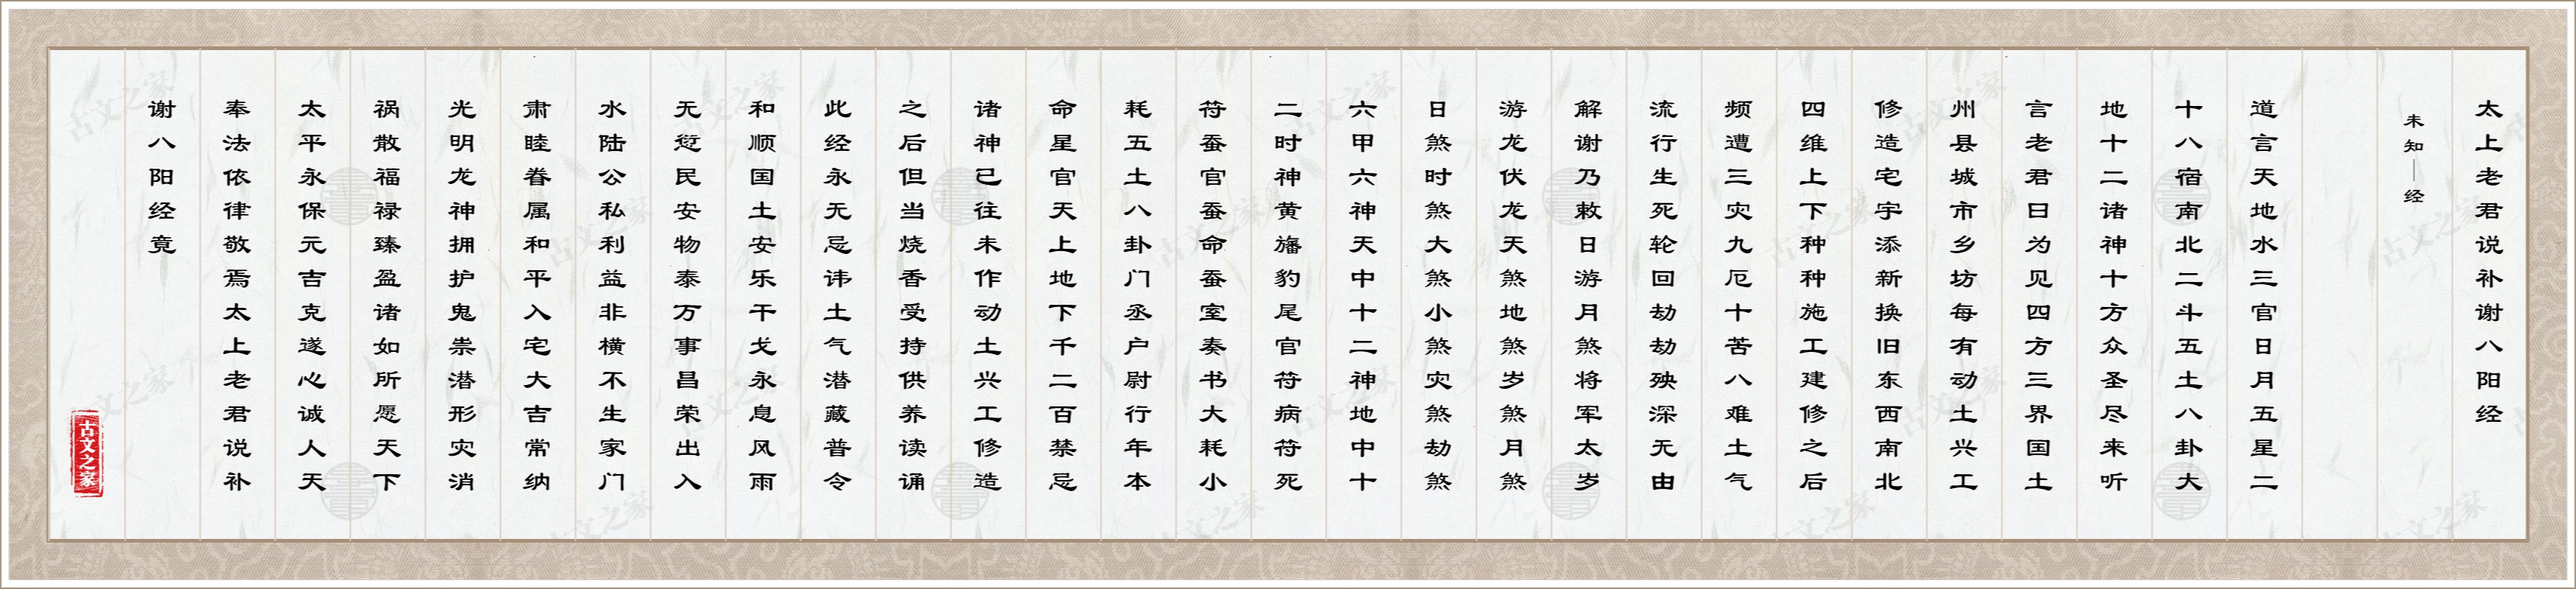 太上老君说补谢八阳经
未知——经
道言天地水三官日月五星二
十八宿南北二斗五土八卦大
地十二诸神十方众圣尽来听
言老君曰为见四方三界国土
州县城市乡坊每有动土兴工
修造宅宇添新换旧东西南北
四维上下种种施工建修之后
频遭三灾九厄十苦八难土气
流行生死轮回劫劫殃深无由
解谢乃敕日游月煞将军太岁
游龙伏龙天煞地煞岁煞月煞
日煞时煞大煞小煞灾煞劫煞
六甲六神天中十二神地中十
二时神黄旛豹尾官符病符死
符蚕官蚕命蚕室奏书大耗小
耗五土八卦门丞户尉行年本
命星官天上地下千二百禁忌
诸神已往未作动土兴工修造
之后但当烧香受持供养读诵
此经永无忌讳土气潜藏普令
和顺国土安乐干戈永息风雨
无愆民安物泰万事昌荣出入
水陆公私利益非横不生家门
肃睦眷属和平入宅大吉常纳
光明龙神拥护鬼祟潜形灾消
祸散福禄臻盈诸如所愿天下
太平永保元吉克遂心诚人天
奉法依律敬焉太上老君说补
谢八阳经竟
古文之家